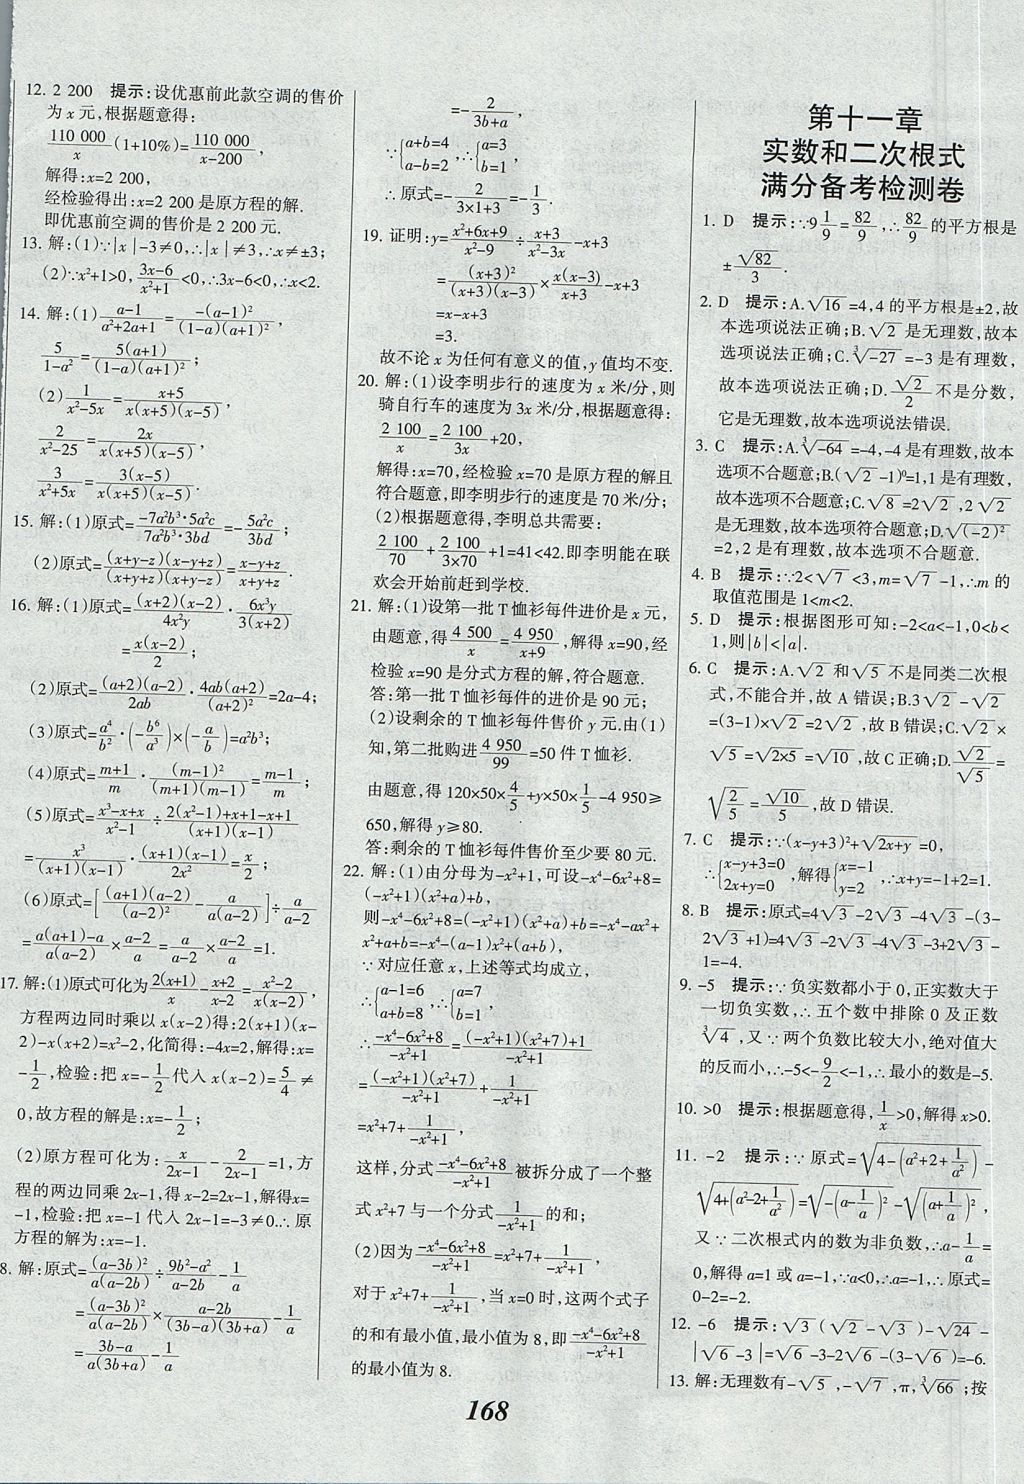 12. 2 200　提示:设优惠前此款空调的售价
为 x 元,根据题意得:
110 000/x(1+10%)=110 000/(x-200),
解得:x=2 200,
经检验得出:x=2 200 是原方程的解.
即优惠前空调的售价是 2 200 元.
13. 解:(1)∵|x|-3≠0,∴|x|≠3,∴x≠±3;
(2)∵x²+1>0,(3x-6)/(x²+1)<0,∴3x-6<0,∴x<2.
14. 解:(1)(a-1)/(a²+2a+1)=-(a-1)²/((1-a)(a+1)²),
5/(1-a²)=5(a+1)/((1-a)(a+1)²);
(2)1/(x²-5x)=(x+5)/(x(x+5)(x-5)),
2/(x²-25)=2x/(x(x+5)(x-5)),
3/(x²+5x)=3(x-5)/(x(x+5)(x-5)).
15. 解:(1)原式=(-7a²b³·5a²c)/(7a²b³·3bd)=-5a²c/3bd;
(2)原式=((x+y-z)(x-y+z))/((x+y+z)(x+y-z))=(x-y+z)/(x+y+z).
16. 解:(1)原式=((x+2)(x-2))/(4x²y)·6x³y/(3(x+2))
=x(x-2)/2;
(2)原式=((a+2)(a-2))/2ab·4ab(a+2)/(a+2)²=2a-4;
(3)原式=a⁴/b²·(-b⁶/a³)×(-a/b)=a²b³;
(4)原式=(m+1)/m·(m-1)²/((m+1)(m-1))=(m-1)/m;
(5)原式=(x³-x+x)/(x²-1)÷(2(x²-1)+x+1-x+1)/((x+1)(x-1))
=x³/((x+1)(x-1))·((x+1)(x-1))/2x²=x/2;
(6)原式=[((a+1)(a-2))/(a(a-2))-a/(a(a-2))]÷a/(a-2)
=(a(a+1)-a)/(a(a-2))×(a-2)/a=a/(a-2)×(a-2)/a=1.
17. 解:(1)原式可化为2(x+1)/x-(x+2)/(x-2)=(x²-2)/(x(x-2)),
方程两边同时乘以 x(x-2)得:2(x+1)(x-
2)-x(x+2)=x²-2,化简得:-4x=2,解得:x=
-1/2,检验:把 x=-1/2代入 x(x-2)=5/4≠
0,故方程的解是:x=-1/2;
(2)原方程可化为:x/(2x-1)-2/(2x-1)=1,方
程的两边同乘 2x-1,得 x-2=2x-1,解得x=
-1,检验:把 x=-1 代入 2x-1=-3≠0.∴原
方程的解为:x=-1.
8. 解:原式=(a-3b)²/(a(a-2b))÷(9b²-a²)/(a-2b)-1/a
=(a-3b)²/(a(a-2b))×(a-2b)/((3b-a)(3b+a))-1/a
=(3b-a)/(a(3b+a))-1/a
=-2/(3b+a),
∵{a+b=4 a-b=2,∴{a=3 b=1,
∴原式=-2/(3×1+3)=-1/3.
19. 证明:y=(x²+6x+9)/(x²-9)÷(x+3)/(x²-3x)-x+3
=(x+3)²/((x+3)(x-3))×x(x-3)/(x+3)-x+3
=x-x+3
=3.
故不论 x 为任何有意义的值,y 值均不变.
20. 解:(1)设李明步行的速度为 x 米/分,则
骑自行车的速度为 3x 米/分,根据题意得:
2 100/x=2 100/3x+20,
解得:x=70,经检验 x=70 是原方程的解且
符合题意,即李明步行的速度是 70 米/分;
(2)根据题意得,李明总共需要:
2 100/70+2 100/(3×70)+1=41<42.即李明能在联
欢会开始前赶到学校.
21. 解:(1)设第一批 T 恤衫每件进价是 x 元,
由题意,得4 500/x=4 950/(x+9),解得 x=90,经
检验 x=90 是分式方程的解,符合题意.
答:第一批 T 恤衫每件的进价是 90 元;
(2)设剩余的 T 恤衫每件售价 y 元.由(1)
知,第二批购进4 950/99=50 件 T 恤衫.
由题意,得 120×50×4/5+y×50×1/5-4 950≥
650,解得 y≥80.
答:剩余的 T 恤衫每件售价至少要 80 元.
22. 解:(1)由分母为-x²+1,可设-x⁴-6x²+8=
(-x²+1)(x²+a)+b,
则-x⁴-6x²+8=(-x²+1)(x²+a)+b=-x⁴-ax²+
x²+a+b=-x⁴-(a-1)x²+(a+b),
∵对应任意 x,上述等式均成立,
∴{a-1=6 a+b=8,∴{a=7 b=1,
∴(-x⁴-6x²+8)/(-x²+1)=((-x²+1)(x²+7)+1)/(-x²+1)
=((-x²+1)(x²+7))/(-x²+1)+1/(-x²+1)
=x²+7+1/(-x²+1),
这样,分式(-x⁴-6x²+8)/(-x²+1)被拆分成了一个整
式 x²+7 与一个分式1/(-x²+1)的和;
(2)因为(-x⁴-6x²+8)/(-x²+1)=x²+7+1/(-x²+1),
对于 x²+7+1/(-x²+1),当 x=0 时,这两个式子
的和有最小值,最小值为 8,即(-x⁴-6x²+8)/(-x²+1)
的最小值为 8.
第十一章
实数和二次根式
满分备考检测卷
1. D　提示:∵9 1/9=82/9,∴82/9的平方根是
±√82/3.
2. D　提示:A.√16=4,4 的平方根是±2,故
本选项说法正确;B.√2是无理数,故本
选项说法正确;C.³√-27=-3 是有理数,
故本选项说法正确;D.√2/2不是分数,
它是无理数,故本选项说法错误.
3. C　提示:A.³√-64=-4,-4 是有理数,故本
选项不合题意;B.(√2-1)⁰=1,1 是有理数,
故本选项不合题意;C.√8=2√2,2√2
是无理数,故本选项符合题意;D.√(-2)²
=2,2 是有理数,故本选项不合题意.
4. B　提示:∵2<√7<3,m=√7-1,∴m 的
取值范围是 1<m<2.
5. D　提示:根据图形可知:-2<a<-1,0<b<
1,则|b|<|a|.
6. C　提示:A.√2和√5不是同类二次根
式,不能合并,故 A 错误;B.3√2-√2
=(3-1)×√2=2√2,故 B 错误;C.√2×
√5=√2×5=√10,故 C 正确;D.√2/√5=
√(2/5)=√10/5,故 D 错误.
7. C　提示:∵(x-y+3)²+√2x+y=0,
∴{x-y+3=0 2x+y=0,解得{x=-1 y=2,∴x+y=-1+2=1.
8. B　提示:原式=4√3-2√3-4√3-(3-
2√3+1)=4√3-2√3-4√3-3+2√3-
1=-4.
9. -5　提示:∵负实数都小于 0,正实数大于
一切负实数,∴五个数中排除 0 及正数
³√4,又∵两个负数比较大小,绝对值大
的反而小,∴-5<-9/2<-1,∴最小的数是-5.
10. >0　提示:根据题意得,1/x>0,解得 x>0.
11. -2　提示:∵原式=√(4-(a²+2+1/a²))-
√(4+(a²-2+1/a²))=√(-(a-1/a)²)-√((a+1/a)²),
又∵二次根式内的数为非负数,∴a-1/a=
0,解得 a=1 或 a=-1,∵a<0,∴a=-1,∴原式=
0-2=-2.
12. -6　提示:√3(√2-√3)-√24-
|√6-3|=√6-3-2√6-(3-√6)=-6.
13. 解:无理数有-√5,-√7,π,³√66;按
168